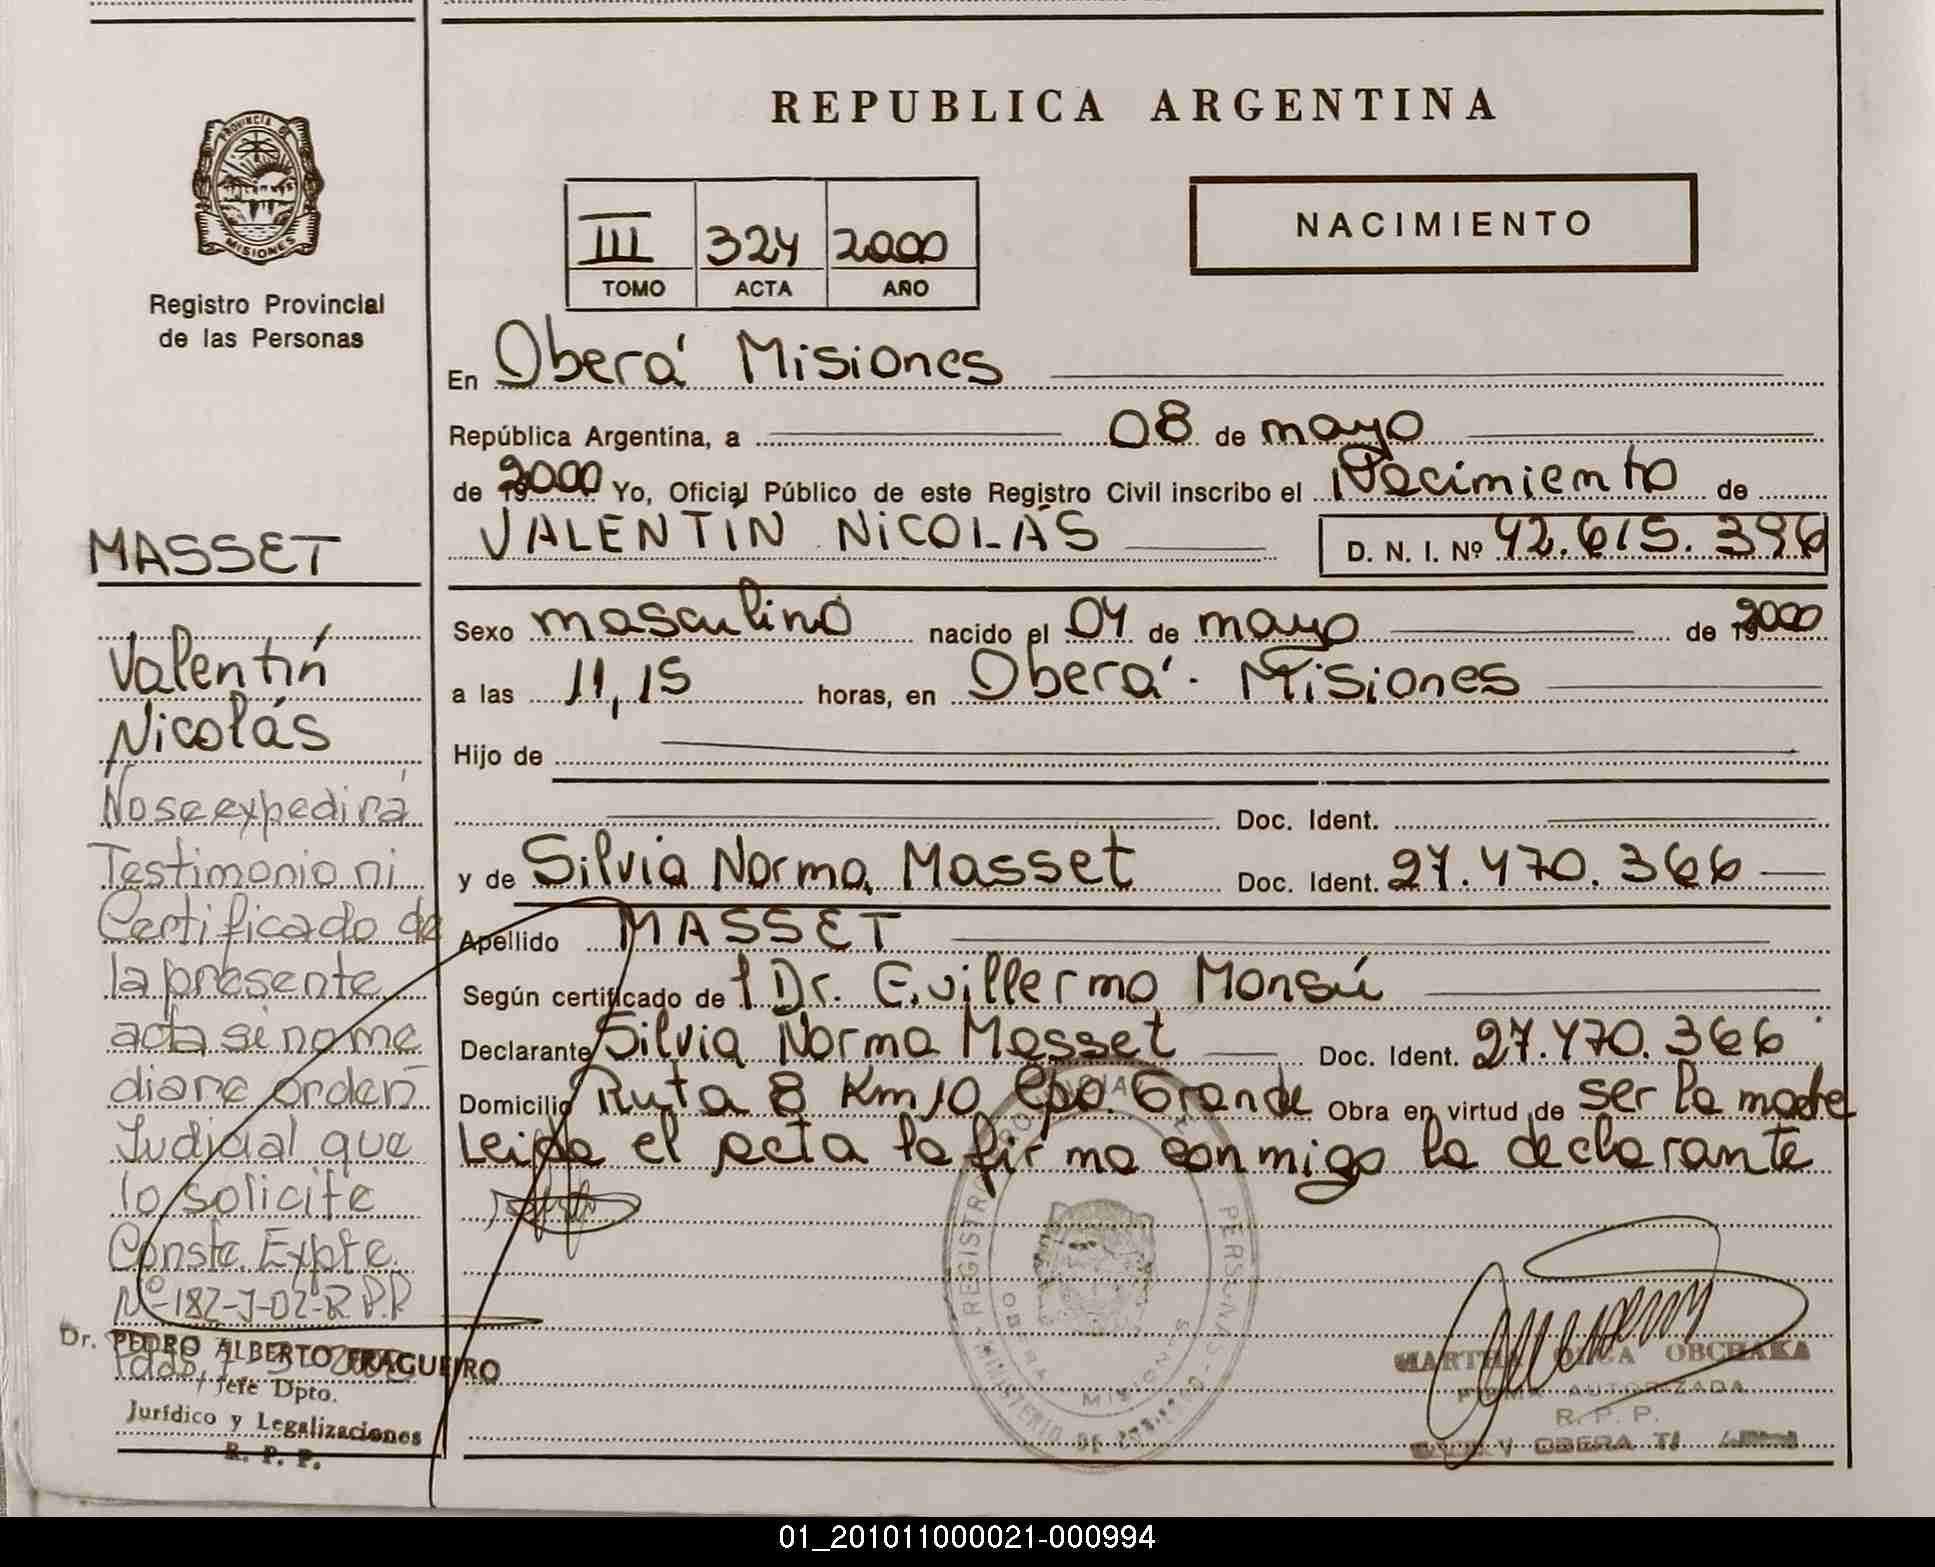 REPUBLICA ARGENTINA
PROVINCIA DE
MISIONES
Registro Provincial
de las Personas
III 324 2000
TOMO ACTA AÑO
NACIMIENTO
En Oberá Misiones
República Argentina, a 08 de mayo
de 2000 Yo, Oficial Público de este Registro Civil inscribo el Nacimiento de
VALENTÍN NICOLÁS D. N. I. Nº 42.615.396
Sexo masculino nacido el 04 de mayo de 2000
a las 11,15 horas, en Oberá - Misiones
Hijo de
Doc. Ident.
y de Silvia Norma Masset Doc. Ident. 27.470.366
Apellido MASSET
Según certificado del Dr. Guillermo Monsú
Declarante Silvia Norma Masset Doc. Ident. 27.470.366
Domicilio Ruta 8 Km 10 Cpo. Grande Obra en virtud de ser la madre
Leida el acta la firma conmigo la declarante
MASSET
Valentín
Nicolás
No se expedirá
Testimonio ni
Certificado de
la presente
acta si no me
diare orden
Judicial que
lo solicite
Conste. Expte.
Nº-182-J-02-R.P.P
Dr. PEDRO ALBERTO FRAGUEIRO
Jefe Dpto.
Jurídico y Legalizaciones
R. P. P.
MARTHA OLGA OBCHAKA
FIRMA AUTORIZADA
R. P. P.
OBERA
01_201011000021-000994